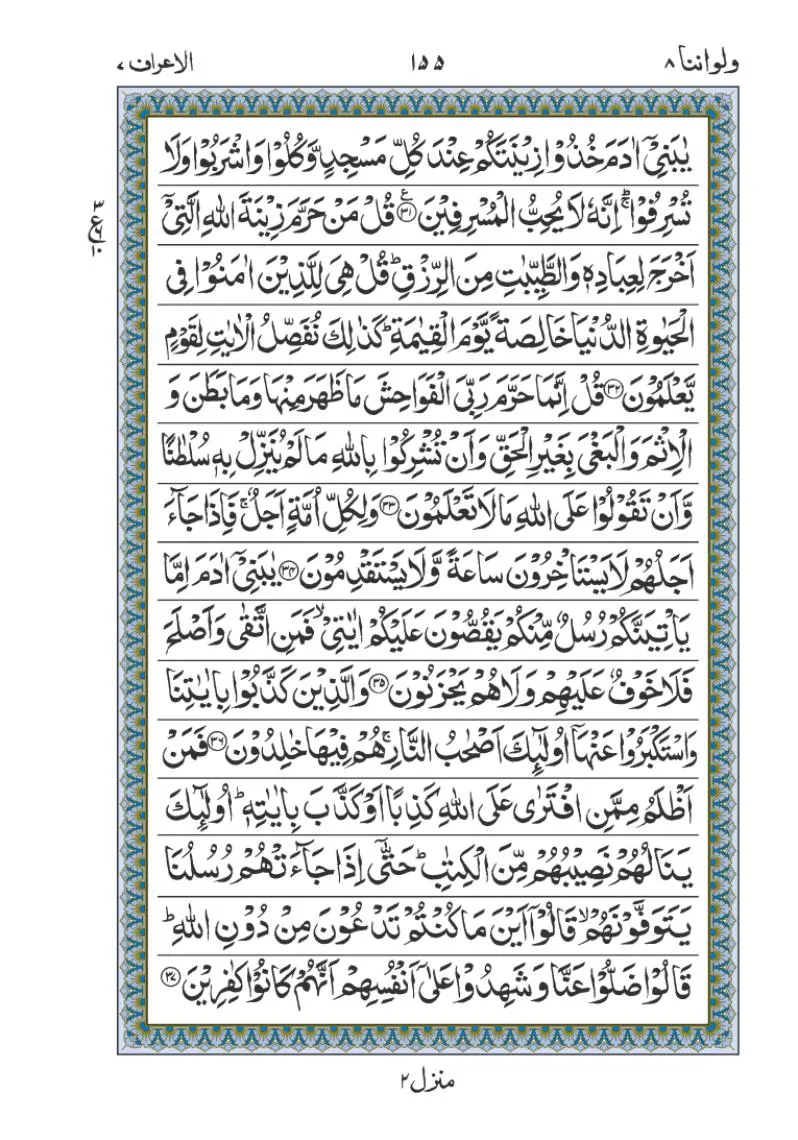 ولواننا ٨
١٥٥
الاعراف ٧
يٰبَنِيْۤ اٰدَمَ خُذُوْا زِيْنَتَكُمْ عِنْدَ كُلِّ مَسْجِدٍ وَّكُلُوْا وَاشْرَبُوْا وَلَا
تُسْرِفُوْا ۚ اِنَّهٗ لَا يُحِبُّ الْمُسْرِفِيْنَ ﴿٣١﴾ ع قُلْ مَنْ حَرَّمَ زِيْنَةَ اللّٰهِ الَّتِيْۤ
اَخْرَجَ لِعِبَادِهٖ وَالطَّيِّبٰتِ مِنَ الرِّزْقِ ؕ قُلْ هِيَ لِلَّذِيْنَ اٰمَنُوْا فِي
الْحَيٰوةِ الدُّنْيَا خَالِصَةً يَّوْمَ الْقِيٰمَةِ ؕ كَذٰلِكَ نُفَصِّلُ الْاٰيٰتِ لِقَوْمٍ
يَّعْلَمُوْنَ ﴿٣٢﴾ قُلْ اِنَّمَا حَرَّمَ رَبِّيَ الْفَوَاحِشَ مَا ظَهَرَ مِنْهَا وَمَا بَطَنَ وَ
الْاِثْمَ وَالْبَغْيَ بِغَيْرِ الْحَقِّ وَاَنْ تُشْرِكُوْا بِاللّٰهِ مَا لَمْ يُنَزِّلْ بِهٖ سُلْطٰنًا
وَّاَنْ تَقُوْلُوْا عَلَى اللّٰهِ مَا لَا تَعْلَمُوْنَ ﴿٣٣﴾ وَلِكُلِّ اُمَّةٍ اَجَلٌ ۚ فَاِذَا جَآءَ
اَجَلُهُمْ لَا يَسْتَاْخِرُوْنَ سَاعَةً وَّلَا يَسْتَقْدِمُوْنَ ﴿٣٤﴾ يٰبَنِيْۤ اٰدَمَ اِمَّا
يَاْتِيَنَّكُمْ رُسُلٌ مِّنْكُمْ يَقُصُّوْنَ عَلَيْكُمْ اٰيٰتِيْ ۙ فَمَنِ اتَّقٰى وَاَصْلَحَ
فَلَا خَوْفٌ عَلَيْهِمْ وَلَا هُمْ يَحْزَنُوْنَ ﴿٣٥﴾ وَالَّذِيْنَ كَذَّبُوْا بِاٰيٰتِنَا
وَاسْتَكْبَرُوْا عَنْهَاۤ اُولٰٓئِكَ اَصْحٰبُ النَّارِ ۚ هُمْ فِيْهَا خٰلِدُوْنَ ﴿٣٦﴾ فَمَنْ
اَظْلَمُ مِمَّنِ افْتَرٰى عَلَى اللّٰهِ كَذِبًا اَوْ كَذَّبَ بِاٰيٰتِهٖ ؕ اُولٰٓئِكَ
يَنَالُهُمْ نَصِيْبُهُمْ مِّنَ الْكِتٰبِ ؕ حَتّٰۤى اِذَا جَآءَتْهُمْ رُسُلُنَا
يَتَوَفَّوْنَهُمْ ۙ قَالُوْۤا اَيْنَ مَا كُنْتُمْ تَدْعُوْنَ مِنْ دُوْنِ اللّٰهِ ؕ
قَالُوْا ضَلُّوْا عَنَّا وَشَهِدُوْا عَلٰۤى اَنْفُسِهِمْ اَنَّهُمْ كَانُوْا كٰفِرِيْنَ ﴿٣٧﴾
منزل ٢